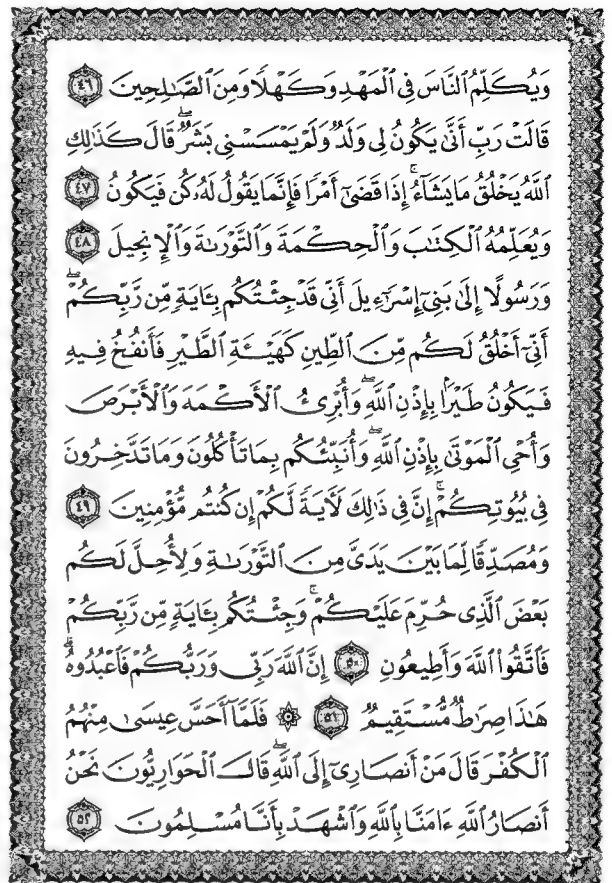 وَيُكَلِّمُ ٱلنَّاسَ فِي ٱلْمَهْدِ وَكَهْلًا وَمِنَ ٱلصَّٰلِحِينَ ٤٦
قَالَتْ رَبِّ أَنَّىٰ يَكُونُ لِي وَلَدٌ وَلَمْ يَمْسَسْنِي بَشَرٌ ۖ قَالَ كَذَٰلِكِ
ٱللَّهُ يَخْلُقُ مَا يَشَآءُ ۚ إِذَا قَضَىٰٓ أَمْرًا فَإِنَّمَا يَقُولُ لَهُۥ كُن فَيَكُونُ ٤٧
وَيُعَلِّمُهُ ٱلْكِتَٰبَ وَٱلْحِكْمَةَ وَٱلتَّوْرَىٰةَ وَٱلْإِنجِيلَ ٤٨
وَرَسُولًا إِلَىٰ بَنِيٓ إِسْرَٰٓءِيلَ أَنِّي قَدْ جِئْتُكُم بِـَٔايَةٍ مِّن رَّبِّكُمْ ۖ
أَنِّيٓ أَخْلُقُ لَكُم مِّنَ ٱلطِّينِ كَهَيْـَٔةِ ٱلطَّيْرِ فَأَنفُخُ فِيهِ
فَيَكُونُ طَيْرًۢا بِإِذْنِ ٱللَّهِ ۖ وَأُبْرِئُ ٱلْأَكْمَهَ وَٱلْأَبْرَصَ
وَأُحْيِ ٱلْمَوْتَىٰ بِإِذْنِ ٱللَّهِ ۖ وَأُنَبِّئُكُم بِمَا تَأْكُلُونَ وَمَا تَدَّخِرُونَ
فِي بُيُوتِكُمْ ۚ إِنَّ فِي ذَٰلِكَ لَـَٔايَةً لَّكُمْ إِن كُنتُم مُّؤْمِنِينَ ٤٩
وَمُصَدِّقًا لِّمَا بَيْنَ يَدَيَّ مِنَ ٱلتَّوْرَىٰةِ وَلِأُحِلَّ لَكُم
بَعْضَ ٱلَّذِي حُرِّمَ عَلَيْكُمْ ۚ وَجِئْتُكُم بِـَٔايَةٍ مِّن رَّبِّكُمْ
فَٱتَّقُوا۟ ٱللَّهَ وَأَطِيعُونِ ٥٠ إِنَّ ٱللَّهَ رَبِّي وَرَبُّكُمْ فَٱعْبُدُوهُ ۗ
هَٰذَا صِرَٰطٌ مُّسْتَقِيمٌ ٥١ ۞ فَلَمَّآ أَحَسَّ عِيسَىٰ مِنْهُمُ
ٱلْكُفْرَ قَالَ مَنْ أَنصَارِيٓ إِلَى ٱللَّهِ ۖ قَالَ ٱلْحَوَارِيُّونَ نَحْنُ
أَنصَارُ ٱللَّهِ ءَامَنَّا بِٱللَّهِ وَٱشْهَدْ بِأَنَّا مُسْلِمُونَ ٥٢